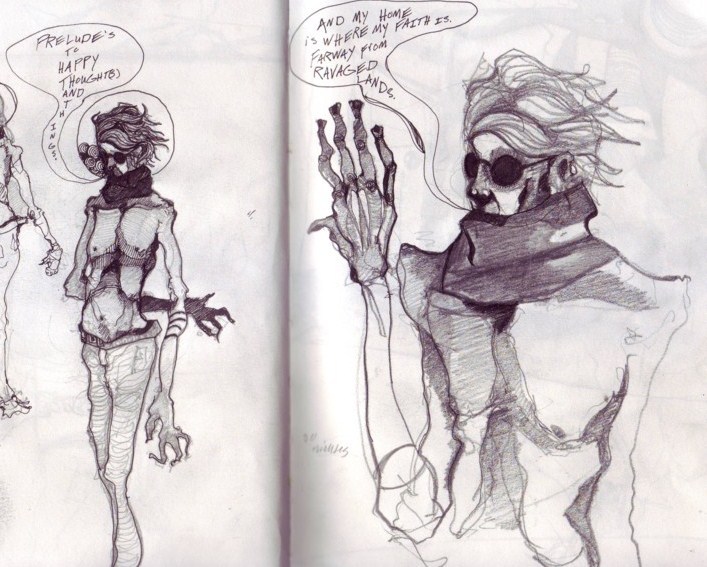 PRELUDE'S
TO
HAPPY
THOUGHT(S)
AND
TH
I
N
G
S.
AND MY HOME
is WHERE MY FAITH IS.
FARWAY FROM
RAVAGED
LANDS.